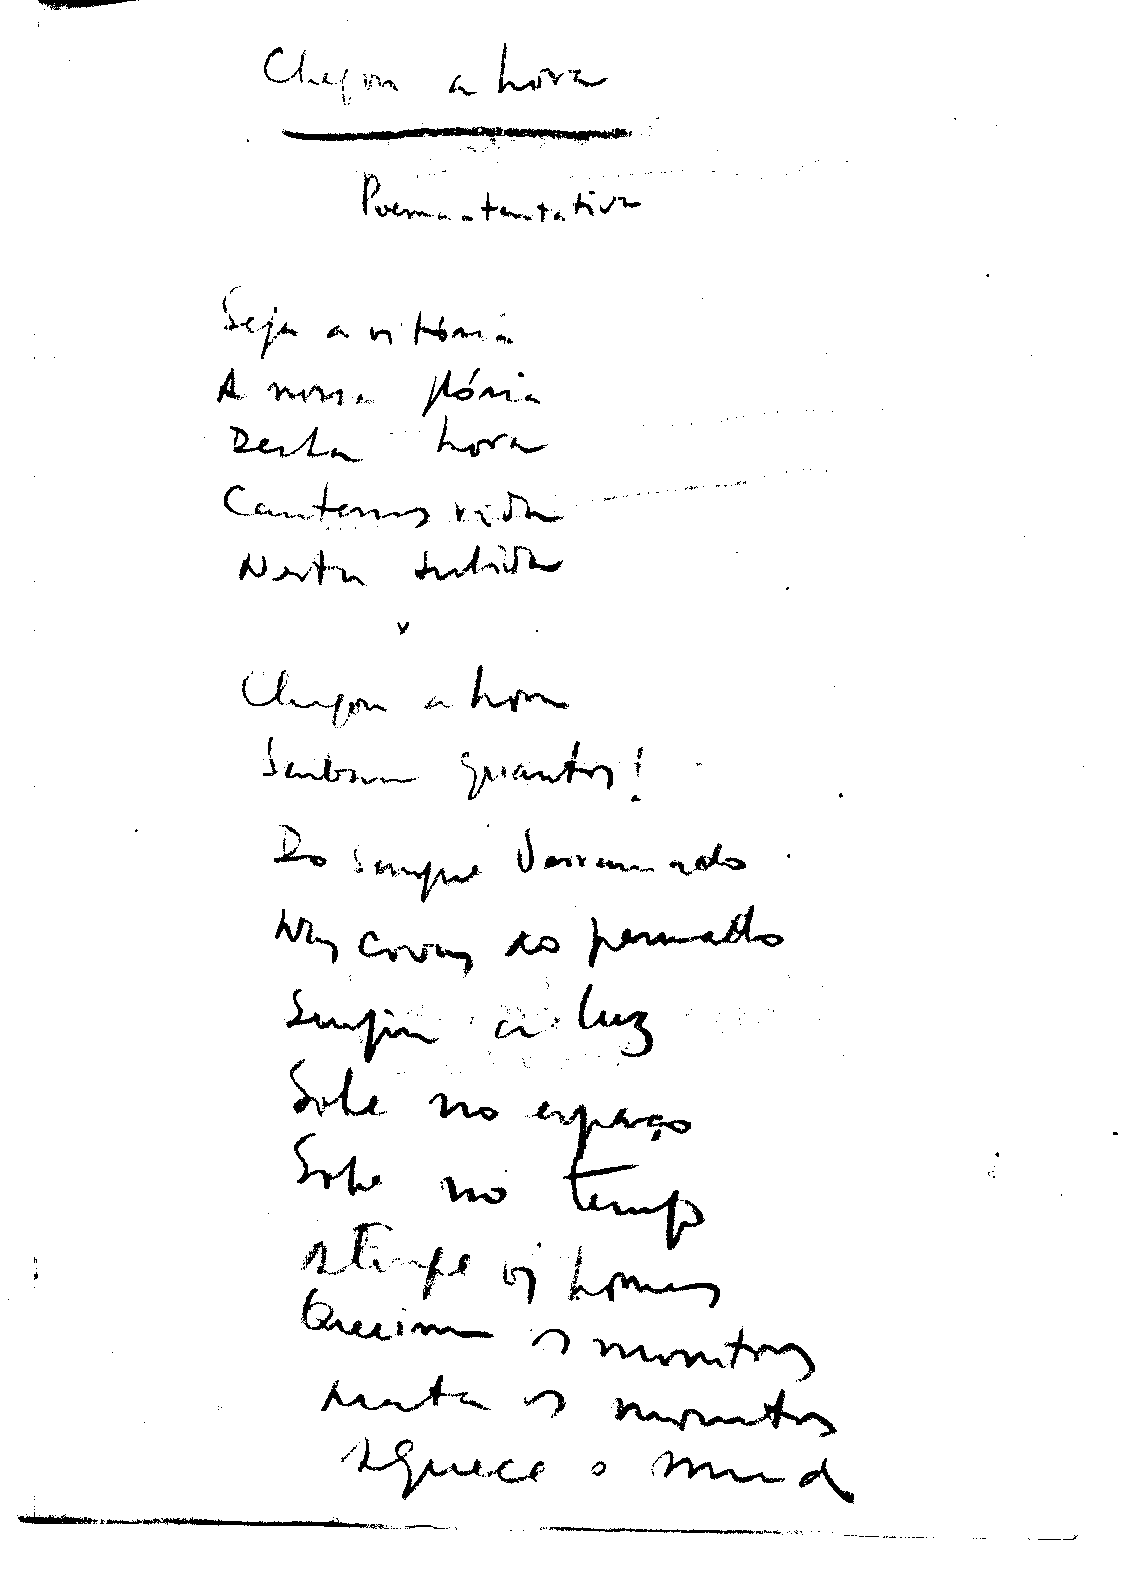 Chegou a hora
Poema-tentativa
Seja a vitória
A nossa glória
Desta hora
Cantemos vida
Nesta subida
x
Chegou a hora
Saibam quantos!
Do Sangue derramado
Nas covas do pensado
Surgiu a luz
Sobe no espaço
Sobe no tempo
Atinge os homens
Queima os monstros
Mata os monstros
Aquece o mundo